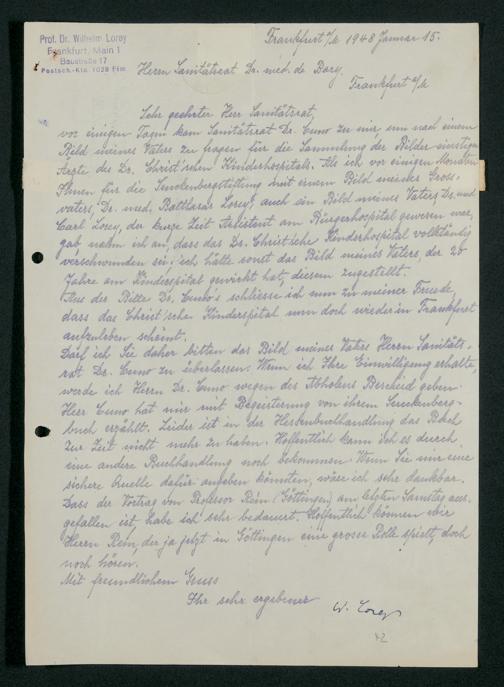 Prof. Dr. Wilhelm Lorey
Frankfurt, Main 1
Baustraße 17
Postsch.-Kto. 1028 Ffm.
Frankfurt a/M 1948 Januar 15.
Herrn Sanitätsrat Dr. med. de Bary.
Frankfurt a/M
Sehr geehrter Herr Sanitätsrat,
vor einigen Tagen kam Sanitätsrat Dr. Cuno zu mir, um nach einem
Bild meines Vaters zu fragen für die Sammlung der Bilder einstiger
Ärzte des Dr. Christ'schen Kinderhospitals. Als ich vor einigen Monaten
Ihnen für die Senckenbergstiftung mit einem Bild meines Gross-
vaters, Dr. med. Balthasar Lorey, auch ein Bild meines Vaters Dr. med.
Carl Lorey, der kurze Zeit Assistent am Bürgerhospital gewesen war,
gab, nahm ich an, dass das Dr. Christ'sche Kinderhospital vollständig
verschwunden sei, ich hätte sonst das Bild meines Vaters, der 20
Jahre am Kinderspital gewirkt hat, diesem zugestellt.
Aus der Bitte Dr. Cuno's schliesse ich nun zu meiner Freude,
dass das Christ'sche Kinderspital nun doch wieder in Frankfurt
aufzuleben scheint.
Darf ich Sie daher bitten das Bild meines Vaters Herrn Sanitäts-
rat Dr. Cuno zu überlassen. Wenn ich Ihre Einwilligung erhalte,
werde ich Herrn Dr. Cuno wegen des Abholens Bescheid geben.
Herr Cuno hat mir mit Begeisterung von ihrem Senckenberg-
buch erzählt. Leider ist in der Hessenbuchhandlung das Buch
zur Zeit nicht mehr zu haben. Hoffentlich kann ich es durch
eine andere Buchhandlung noch bekommen. Wenn Sie mir eine
sichere Quelle dafür angeben könnten, wäre ich sehr dankbar.
Dass der Vortrag von Professor Rein (Göttingen) am letzten Samstag aus-
gefallen ist, habe ich sehr bedauert. Hoffentlich können wir
Herrn Rein, der ja jetzt in Göttingen eine grosse Rolle spielt, doch
noch hören.
Mit freundlichem Gruss
Ihr sehr ergebener
W. Lorey
42